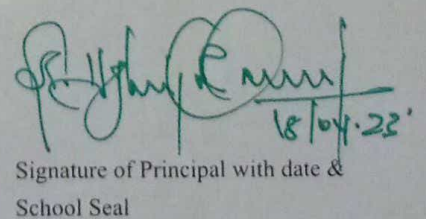 18/04.23
Signature of Principal with date &
School Seal